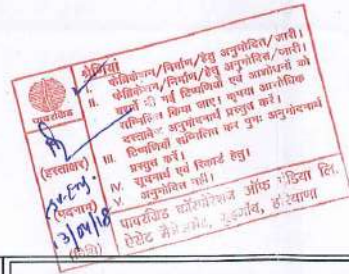 श्रेणियां
I. फेब्रिकेशन/निर्माण/हेतु अनुमोदित/जारी।
II. फेब्रिकेशन/निर्माण/हेतु अनुमोदित/जारी।
की गई टिप्पणियों एवं आशोधनों को
सम्मिलित किया जाए। कृपया
दस्तावेज अनुमोदनार्थ प्रस्तुत करें।
III. टिप्पणियाँ सम्मिलित कर पुनः अनुमोदनार्थ
प्रस्तुत करें।
IV. सूचनार्थ एवं रिकार्ड हेतु।
V. अनुमोदित नहीं।
पावरग्रिड
(हस्ताक्षर)
(पदनाम)
13/04/18
(तिथि)
पावरग्रिड कॉरपोरेशन ऑफ इंडिया लि.
ऐसेट मैनेजमेंट, गुड़गाँव, हरियाणा